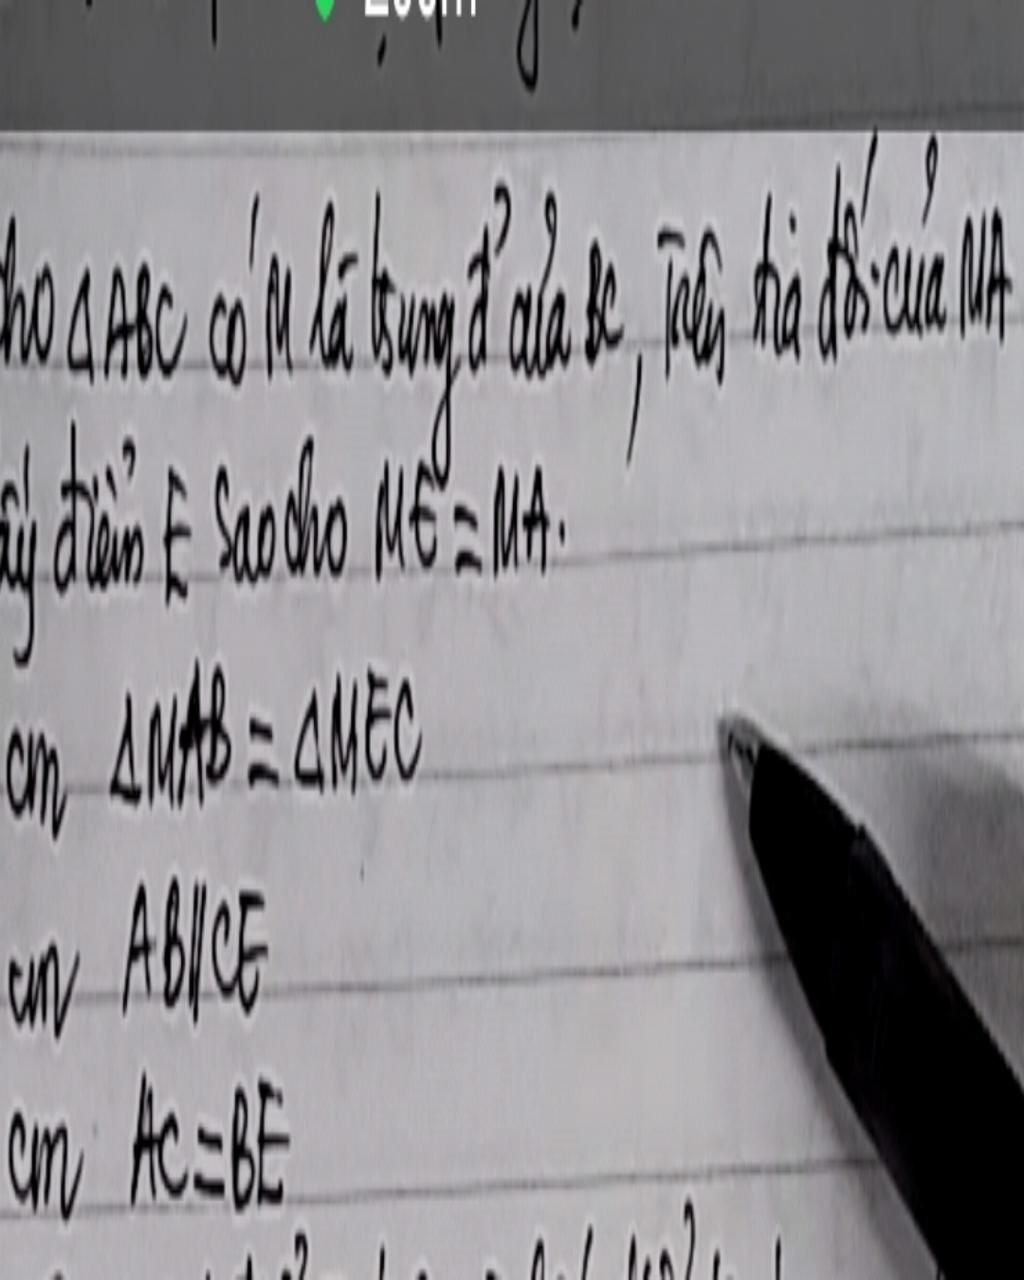 Zoom
ho ΔABC có M là trung đ' của BC, Trên tia đối của MA
ấy điểm E Sao cho ME = MA.
cm ΔMAB = ΔMEC
cm AB//CE
cm AC = BE